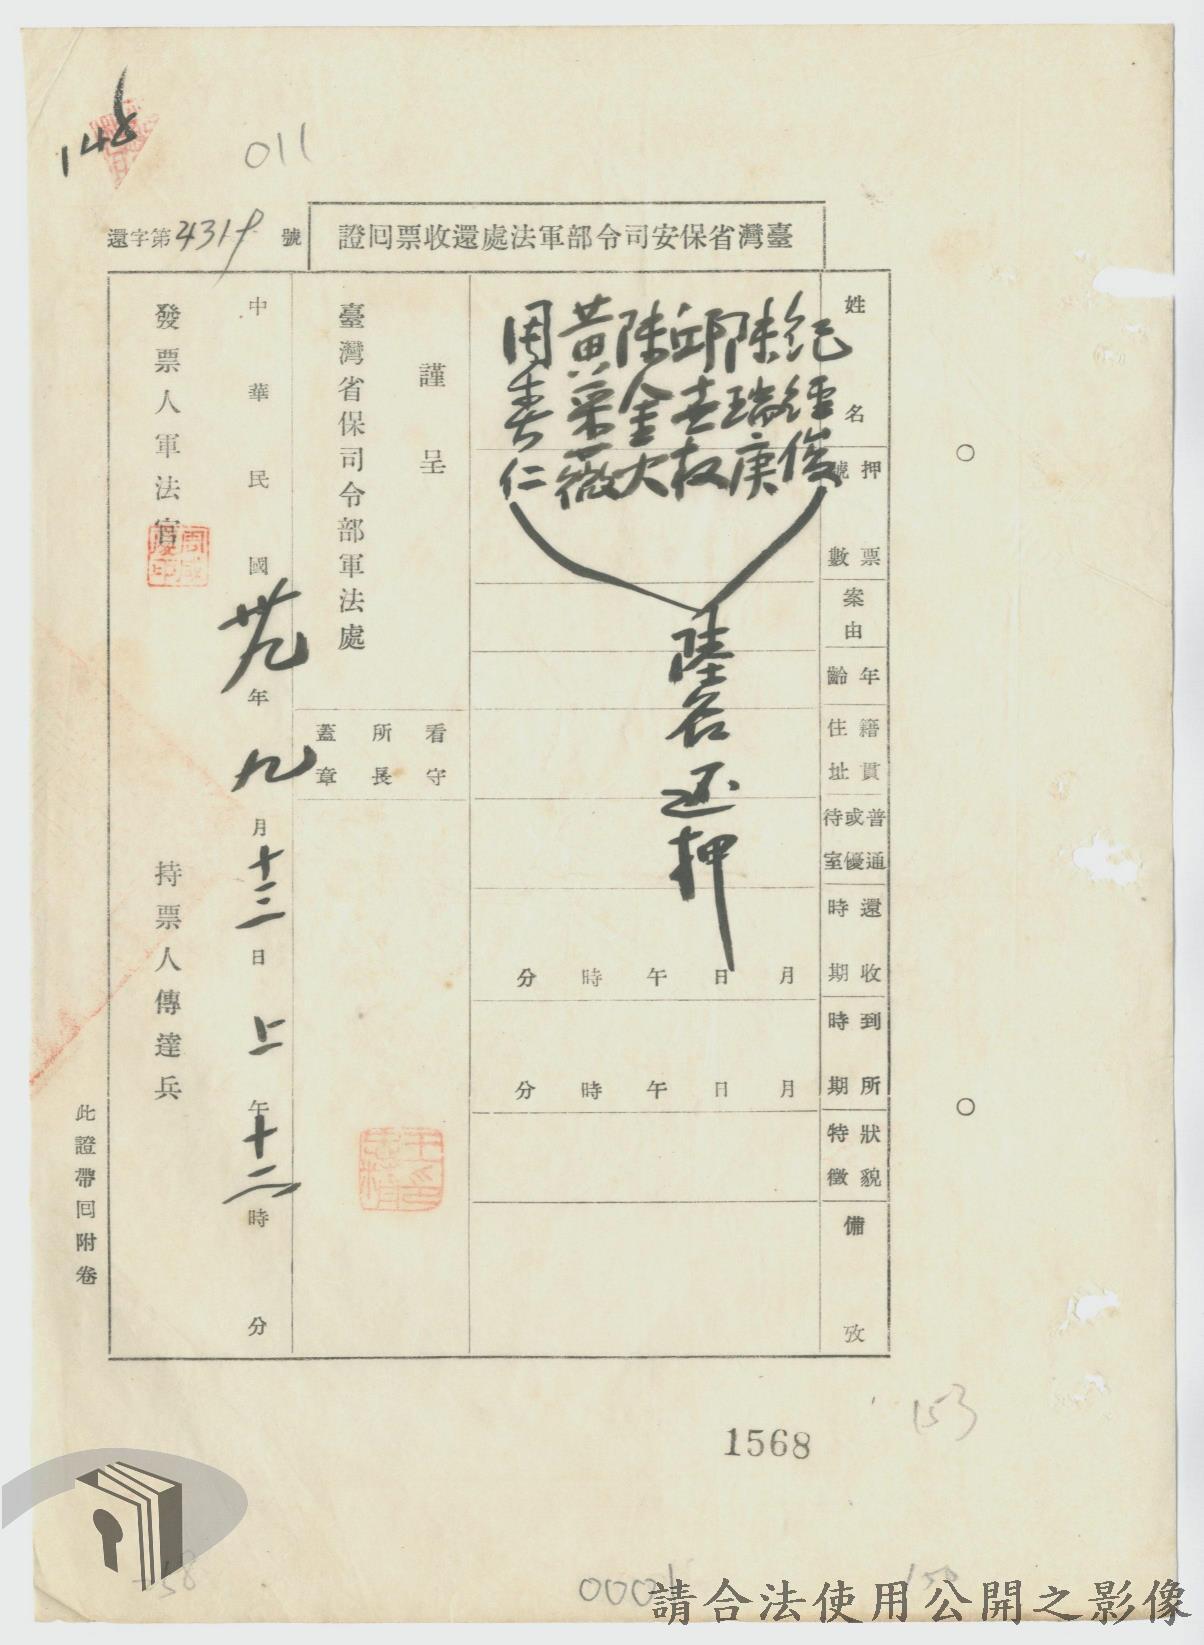 148
011
還字第4319號
臺灣省保安司令部軍法處還收票回證
姓名
押票號數
案由
年齡
籍貫住址
普通或優待室
還收時期
到所時期
狀貌特徵
備攷
紀經俊
陳瑞庚
邱垂枝
陳金火
黃采薇
周春仁
陸名還押
月日午時分
月日午時分
謹呈
臺灣省保司令部軍法處
看守所長蓋章
中華民國卅九年九月十三日上午十二時分
發票人軍法官
持票人傳達兵
此證帶回附卷
1568
153
請合法使用公開之影像